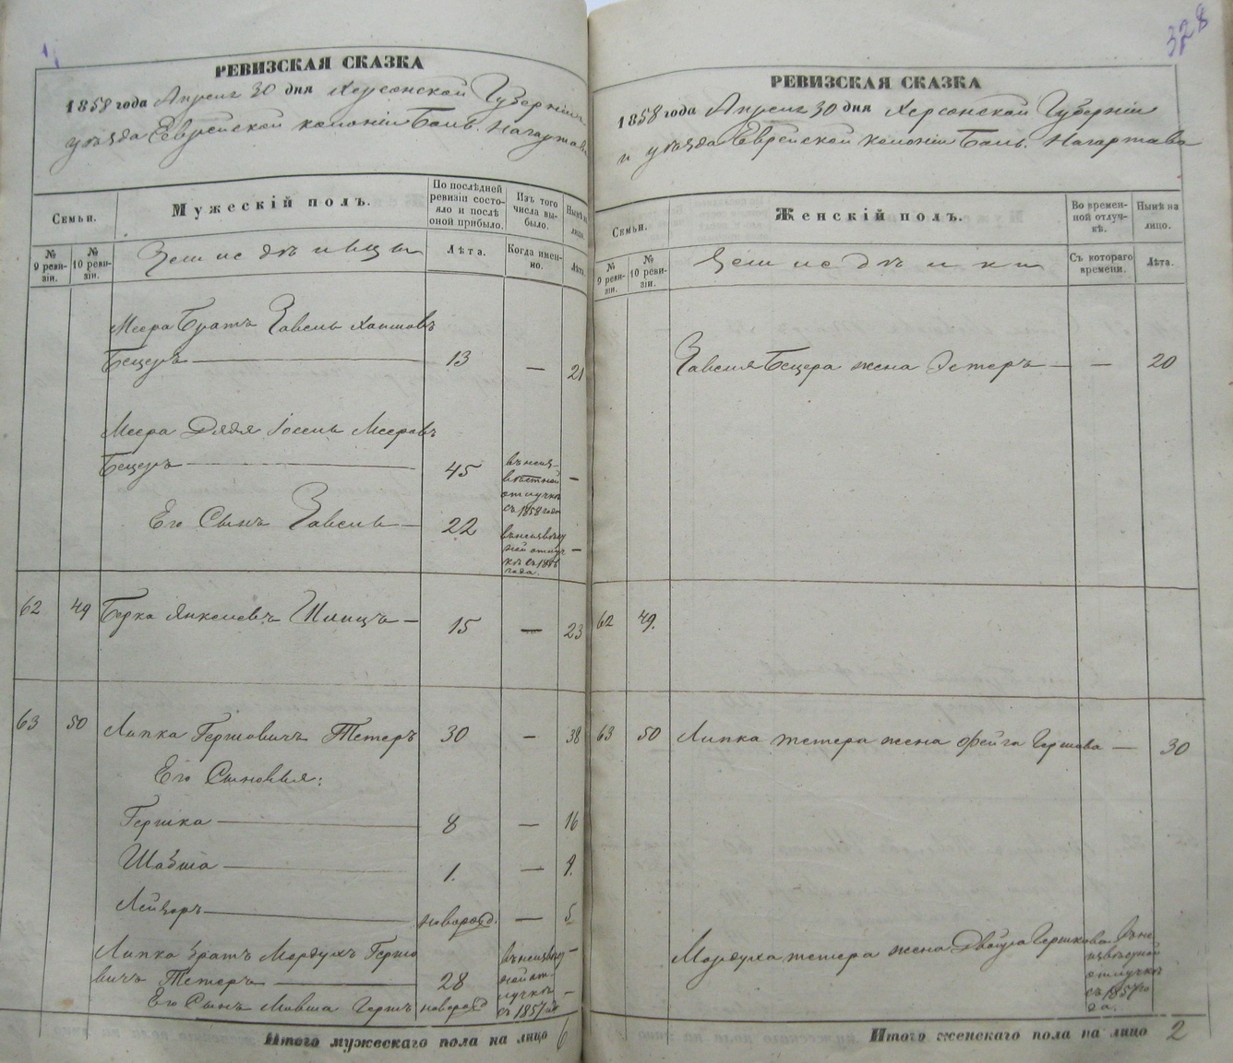 РЕВИЗСКАЯ СКАЗКА
1858 года Апреля 30 дня Херсонской Губерніи
уѣзда Еврейской колоніи Боль. Нагартава
Семьи.
Мужескій полъ.
По послѣдней ревизіи состояло и послѣ оной прибыло.
Изъ того числа выбыло.
Нынѣ на лицо.
№ 9 ревизіи.
№ 10 ревизіи.
Земледѣльцы
Лѣта.
Когда именно.
Лѣта.
Меера Братъ Завель Хаимовъ
Бецеръ — 13 — 21
Меера Дядя Іосель Мееровъ
Бецеръ — 45 въ неизвѣстной отлучкѣ съ 1858 года —
Его Сынъ Завель — 22 въ неизвѣстной отлучкѣ съ года. —
62 49 Берка Янкелевъ — 15 — 23
63 50 Липка Гершовичъ Тетеръ 30 — 38
Его Сыновья:
Гершка — 8 — 16
Шавша — 1. — 9.
Лейзеръ — новорожд. — 5
Липка братъ Мордухъ Гершо
вичъ Тетеръ — 28 въ неизвѣстной отлучкѣ съ 1857 года —
Его Сынъ Мовша Гершъ новорожд —
Итого мужескаго пола на лицо 6
328
РЕВИЗСКАЯ СКАЗКА
1858 года Апреля 30 дня Херсонской Губерніи
и уѣзда Еврейской колоніи Боль. Нагартава
Семьи.
Женскій полъ.
Во временной отлучкѣ.
Нынѣ на лицо.
№ 9 ревизіи.
№ 10 ревизіи.
Земледѣлки
Съ котораго времени.
Лѣта.
Завеля Бецера жена Эстеръ — — 20
62 49.
63 50 Липка тетера жена Фейга Гершова — 30
Мордуха тетера жена Двейра Гершкова въ неизвѣстной отлучкѣ съ 1857 года.
Итого женскаго пола на лицо 2